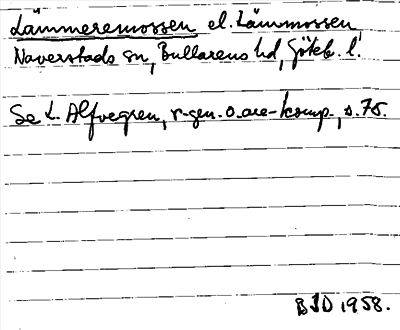 Lämmeremossen el. Lämmossen
Naverstads sn, Bullarens hd, Göteb. l.
Se L. Alfvegren, r-gen. o. are-komp., s. 75.
BJD 1958.